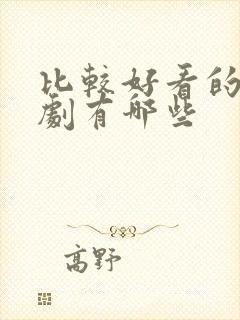 比較好看的
劇有哪些
高野